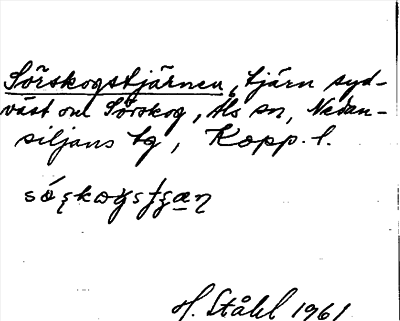 Sörskogstjärnen, tjärn syd-
väst om Sörskog, Als sn, Nedan-
siljans tg, Kopp. l.
H. Ståhl 1961